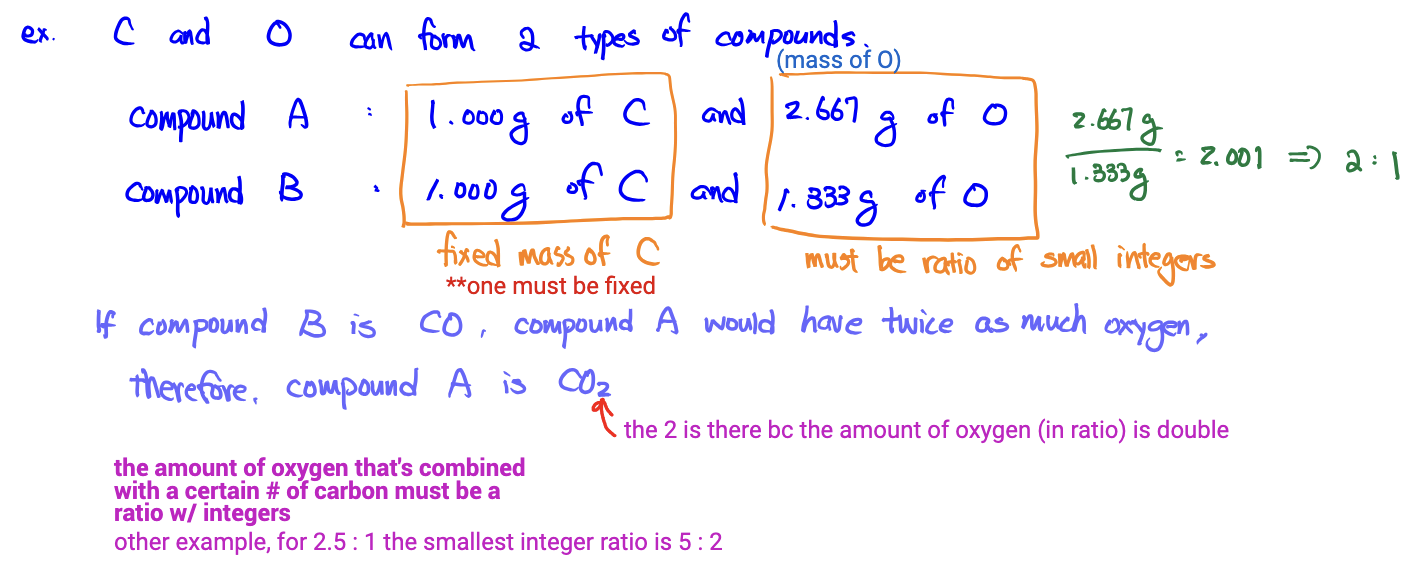 ex. C and O can form 2 types of compounds.
(mass of O)
compound A : 1.000g of C and 2.667 g of O
compound B : 1.000g of C and 1.333g of O
2.667g / 1.333g = 2.001 => 2:1
fixed mass of C
must be ratio of small integers
**one must be fixed
If compound B is CO, compound A would have twice as much oxygen,
therefore, compound A is CO₂
the 2 is there bc the amount of oxygen (in ratio) is double
the amount of oxygen that's combined
with a certain # of carbon must be a
ratio w/ integers
other example, for 2.5 : 1 the smallest integer ratio is 5 : 2